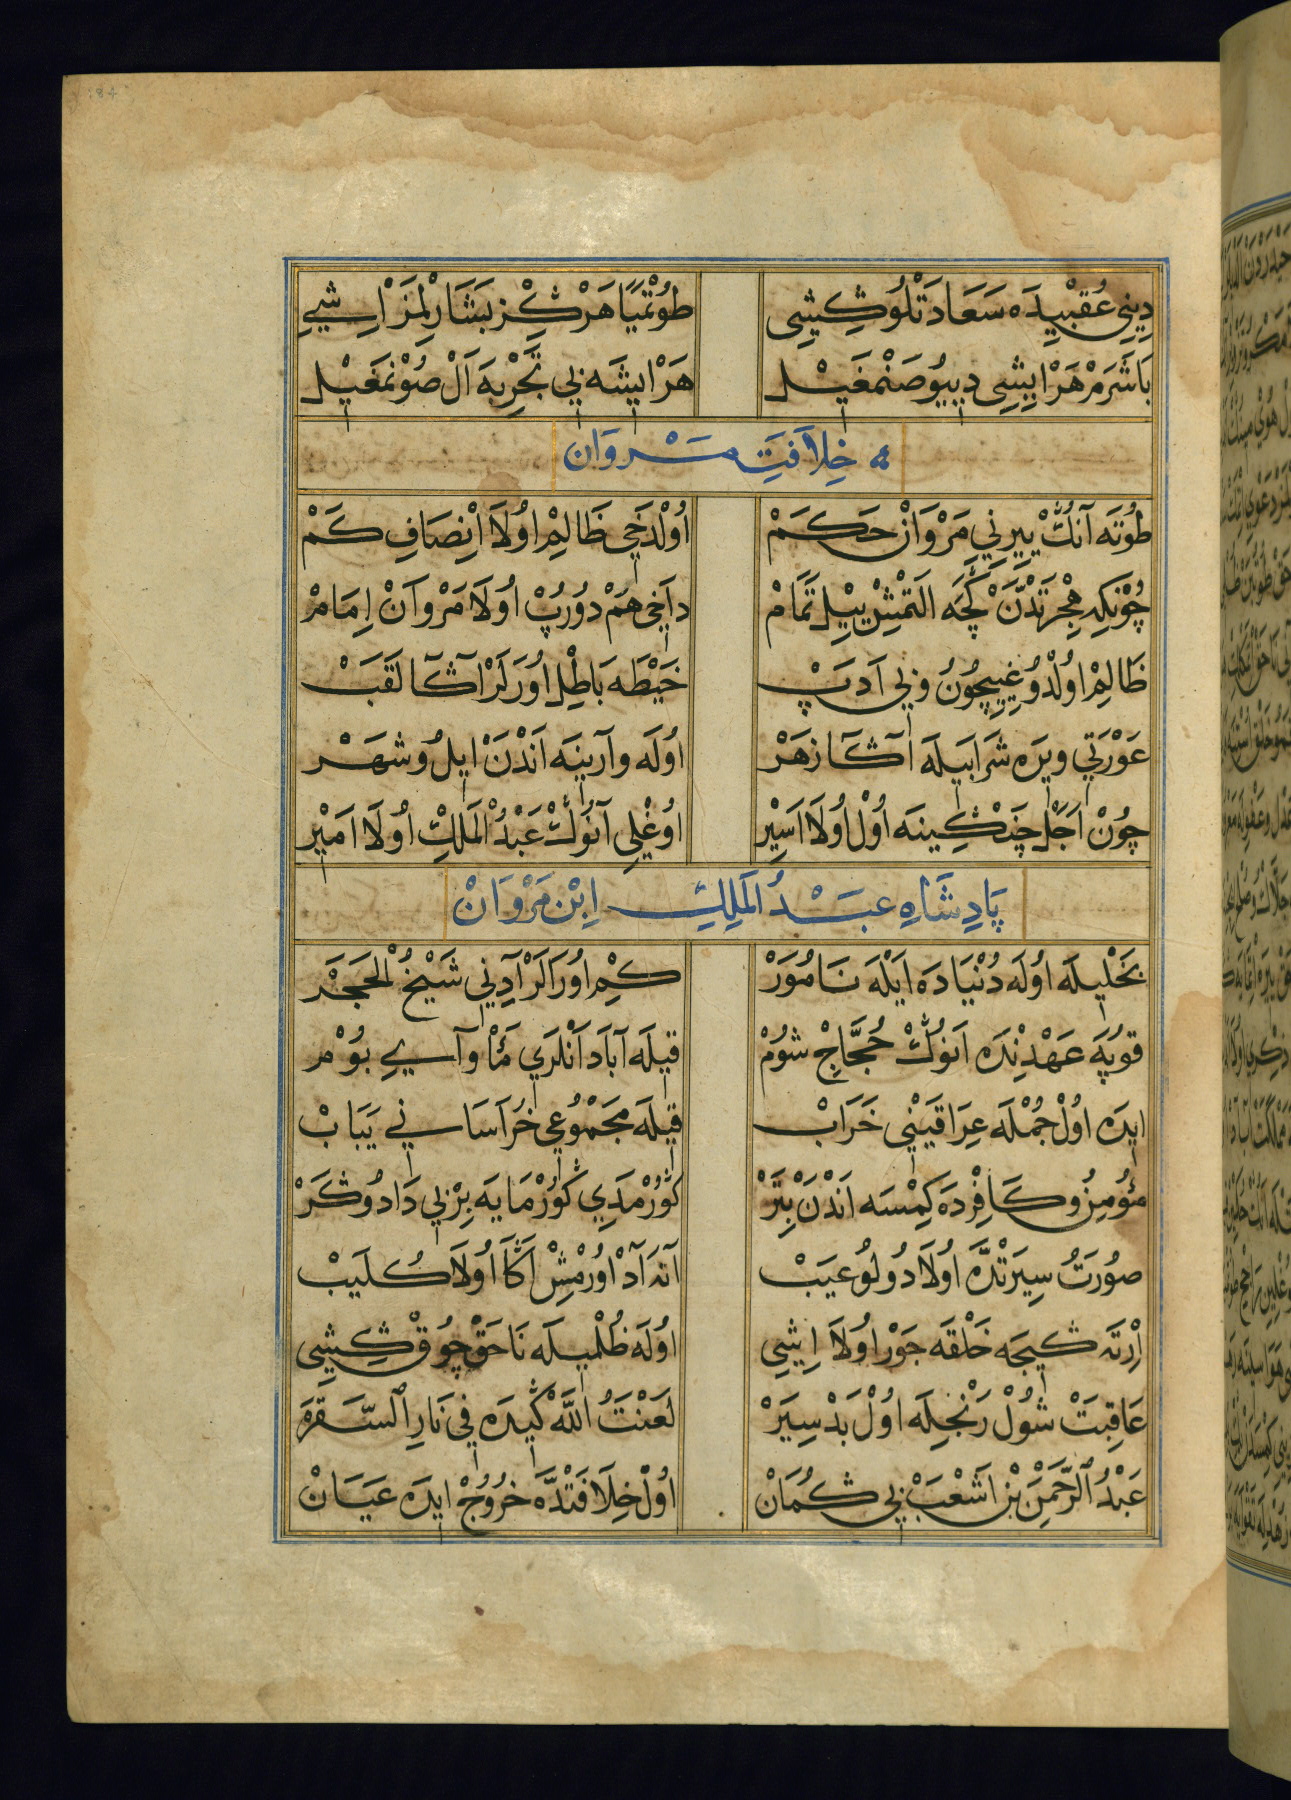 دِينِي عُقْبِيدَه سَعَادَتْلُو كِشِي طُوتْمَيَا هَرْكِزْ بَشَارِلْمَزْ اِشِي
بَاشَرَمْ هَرْ اِيشِي دِيبُو صَنْمَغِيْل هَرْ اِيشَه بِي تَجْرِبَه اَلْ صُونْمَغِيْل
خِلَافَتِ مَرْوَانْ
طُوتَه آنُكْ يِيرِنِي مَرْوَانْ حَكَمْ اُولْدَخِي ظَالِمْ اُولَا اِنْصَافِ كَمْ
چُونكِه هِجْرَتْدَنْ كَچَه الْتمِشْ يِيلْ تَمَامْ دَاخِي هَمْ دُورُپْ اُولَا مَرْوَانْ اِمَامْ
ظَالِمْ اُولْدُوغِيچُونُ وبِي اَدَبْ خَيْطَه بَاطِلْ اُورَلَرْ آكَا لَقَبْ
عَوْرَتِي وِيرَه شَرَابيلَه آكَا زَهْرْ اُولَه وآرِينَه اَنْدَنْ اِيلُ وشَهْرْ
چُونْ اَجَلْ چَنْكِينَه اُولْ اُولَا اَسِيرْ اُوغْلِي آنُوكْ عَبْدُ الْمَلِكْ اُولَا اَمِيْر
پَادِشَاهِ عَبْدُ الْمَلِكِ اِبْنِ مَرْوَانْ
بَخْلِيلَه اُولَه دُنْيَادَه اَيْلَه نَامُوَرْ كِمْ اُورَالَرْ آدِنِي شَيْخُ الْحَجَرْ
قُوپَه عَهْدِنْدَه اَنُوكْ حُجَّاجْ شُومْ قِيلَه آبَادْ اَنْلَرِي مَأْوآيِ بُومْ
ايدَه اُولْ جُمْلَه عِرَاقَيْنِي خَرَابْ قِيلَه مَجْمُوعِي خُرَاسَانِي يَبَابْ
مُؤْمِنُ وكَافِرْدَه كِمْسَه اَنْدَنْ بِتَرْ كُورْمَدِي كُورْمَايَه بِرْ بِي دَادُوكَرْ
صُورَتُ سِيرَتْدَه اُولَا دُولُو عَيَبْ آنَه آدْ اُورْمِشْ اَكَا اُولَا كُلَيبْ
اِرْتَه كِيجَه خَلْقَه جَوْر اُولَا اِيشِي اُولَه ظُلْميلَه نَاحَقْ چُوقْ كِشِي
عَاقِبَتْ شُولْ رَنْجِلَه اُولْ بَدْ سِيَرْ لَعْنَتُ اللَّه كِيدَه فِي نَارِ السَّقَرْ
عَبْدُ الرَّحْمَنْ بْنِ اَشْعَبْ بِي كُمَانْ اُولْ خِلَافَتْدَه خُرُوجْ ايدَه عَيَانْ